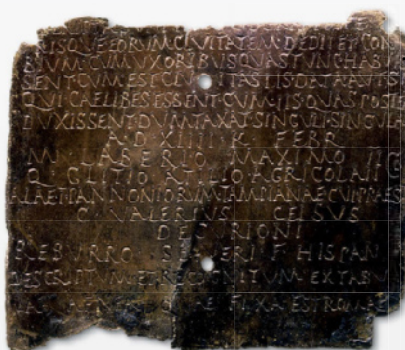 RISQVE EORVM CIVITATEM DEDIT ET CON
BIVM CVM VXORIBVS QVAS TVNC HAB
SENT CVM EST CIVITAS IIS DATA AVT S
QVI CAELIBES ESSENT CVM IIS QVAS POSTE
DVXISSENT DVMTAXAT SINGVLI SINGVLA
A D XIIII K FEBR
M LABERIO MAXIMO II
Q GLITIO ATILIO AGRICOLA II
ALAE I PANNONIORVM TAMPIANAE CVI PRAES
C VALERIVS CELSVS
DECVRIONI
REBVRRO SEVERI F HISPAN
DESCRIPTVM ET RECOGNITVM EX TABV
FIXA EST ROMAE